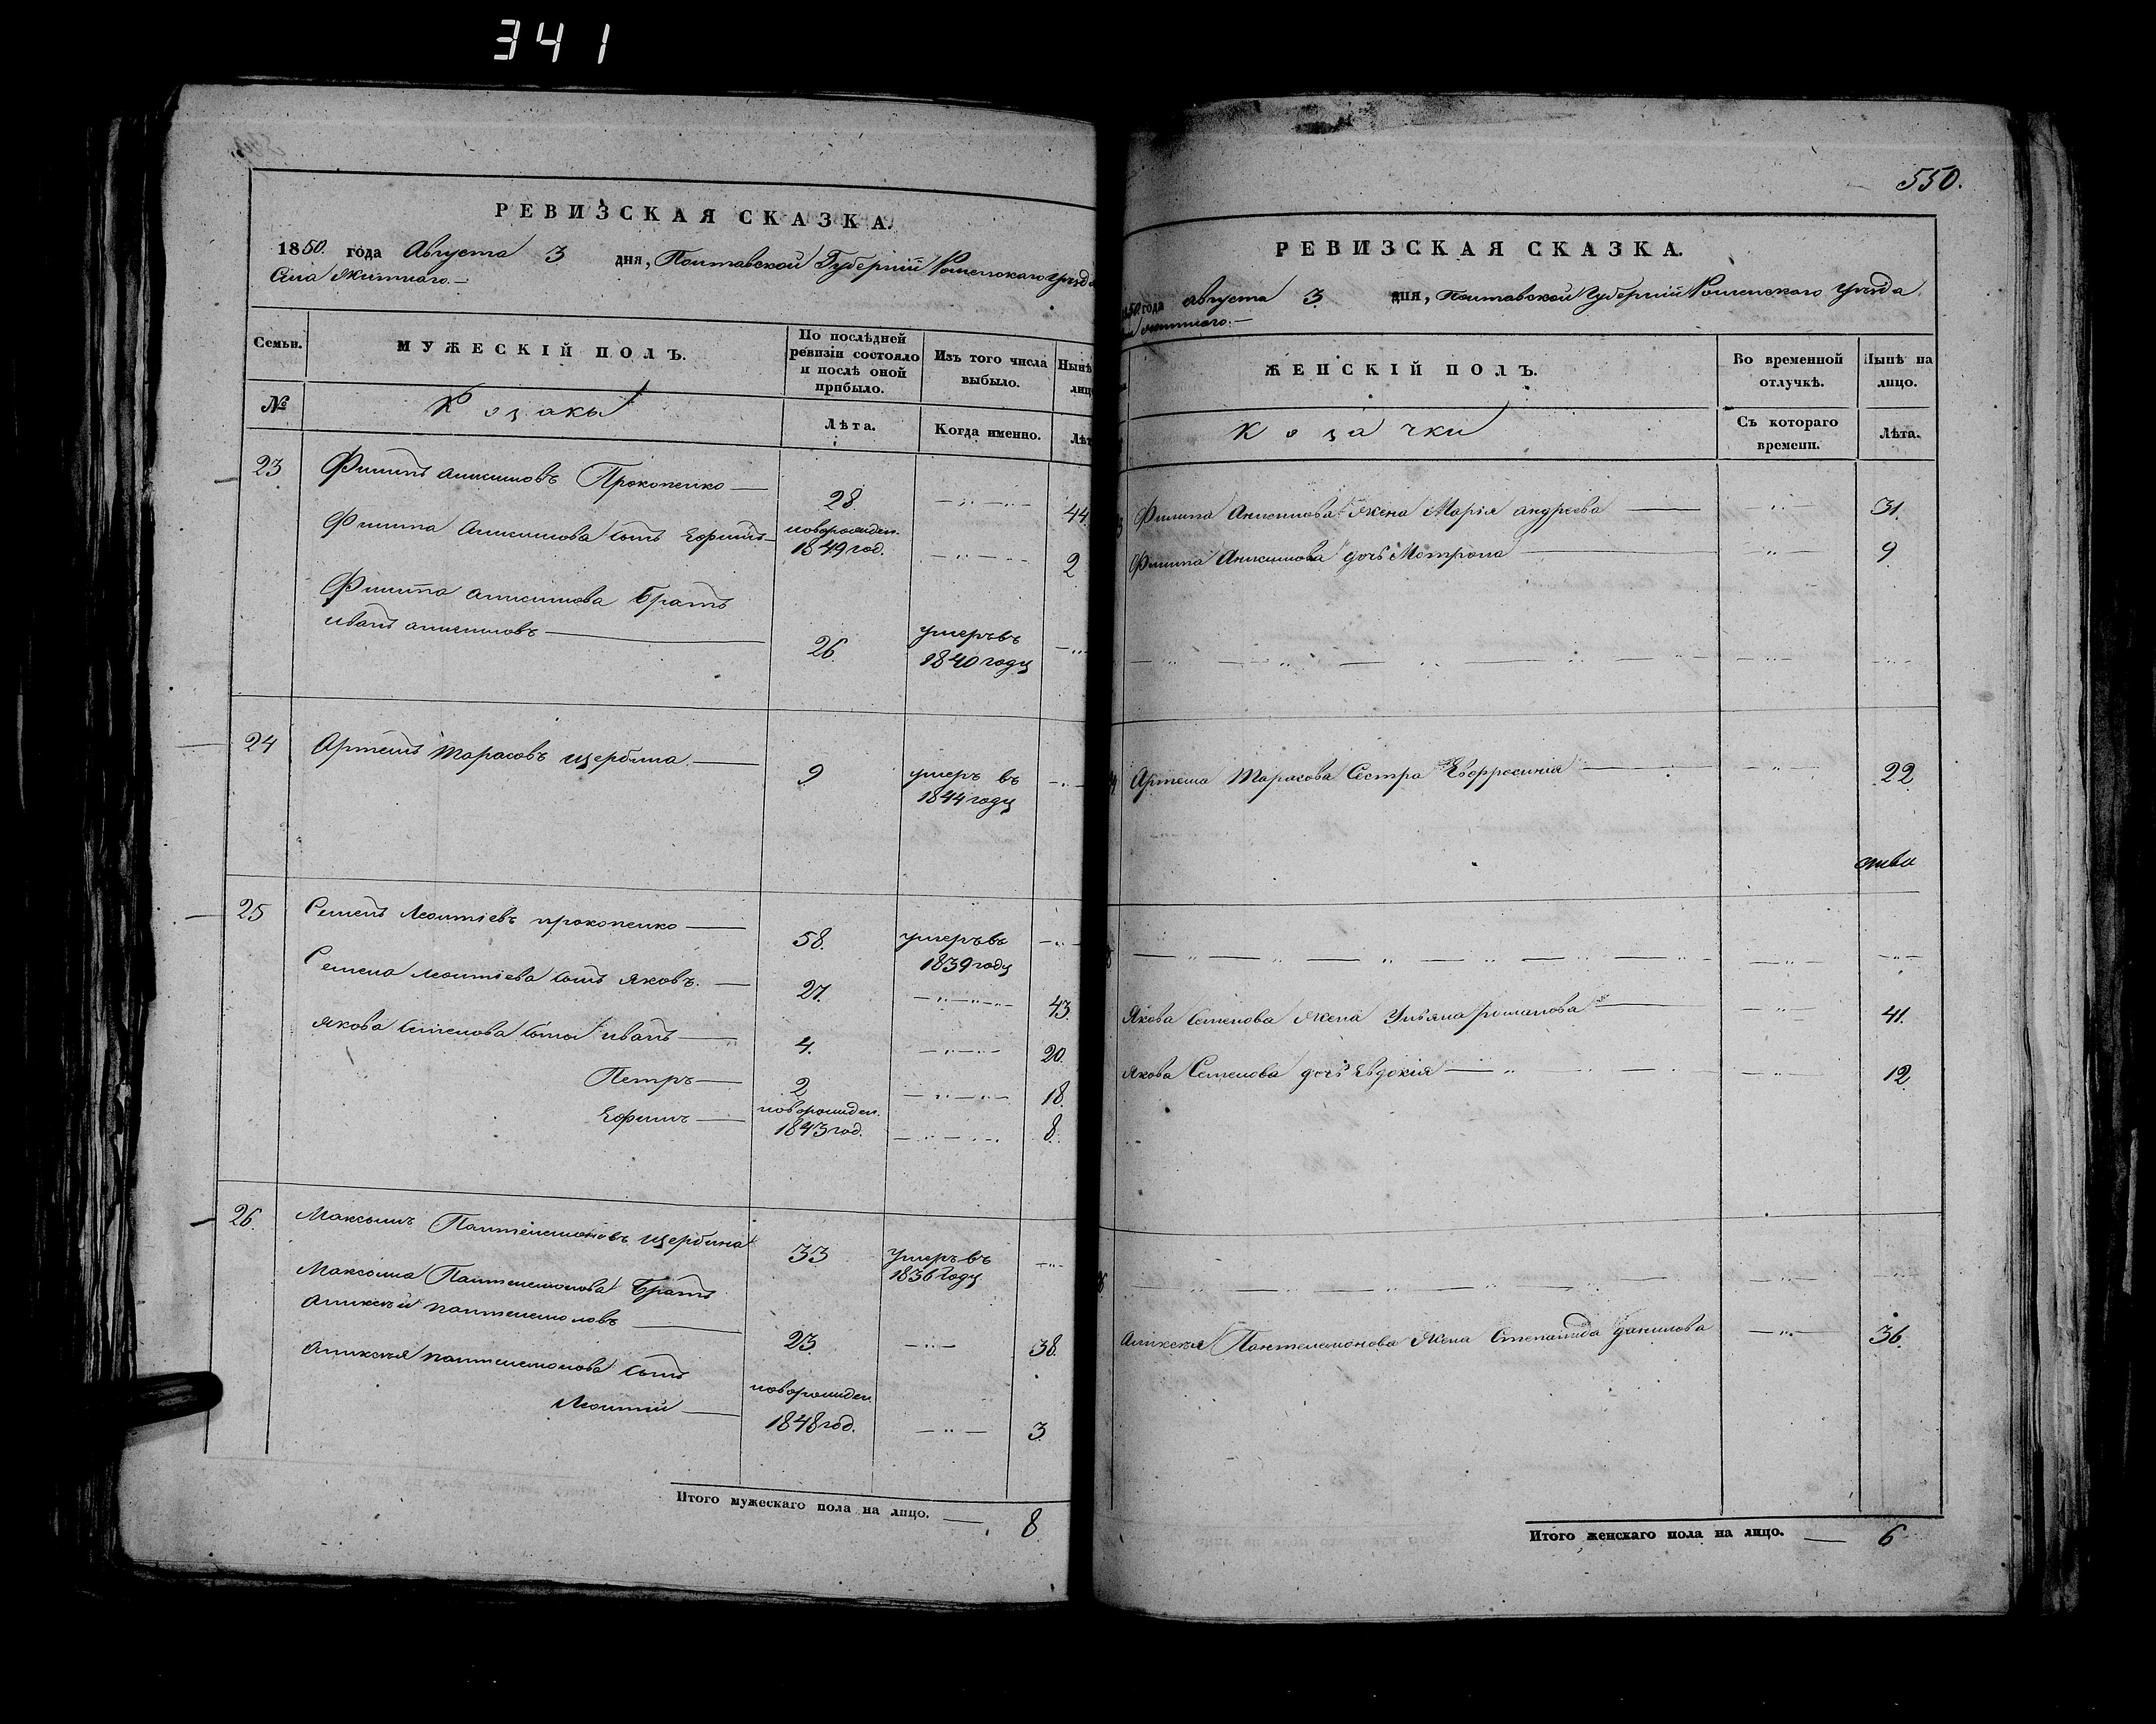 341
РЕВИЗСКАЯ СКАЗКА.
1850. года Августа 3 дня, Полтавской Губерніи Роменскаго уѣзда
Села Житнаго. —
Семьи.
МУЖЕСКІЙ ПОЛЪ.
По послѣдней ревизіи состояло и послѣ оной прибыло.
Изъ того числа выбыло.
Нынѣ
лиц
№
Козаки
Лѣта.
Когда именно.
Лѣт
23 Филипъ Анисимовъ Прокопенко — 28. 44
Филипа Анисимова сынъ Ефимъ — новорожден. 1849 год. 2
Филипа Анисимова Братъ
Иванъ Анисимовъ — 26. умеръ въ 1840 году
24 Артемъ Тарасовъ Щербина — 9 умеръ въ 1844 году
25 Семенъ Леонтіевъ Прокопенко — 58. умеръ въ 1839 году
Семена Леонтіева сынъ Яковъ. — 27. 43.
Якова Семенова сыны Иванъ — 4. 20.
Петръ — 2 18.
Ефимъ — новорожден. 1843 год. 8.
26. Максимъ Пантелемоновъ Щербина 33 Умеръ въ 1836 году
Максима Пантелемонова Братъ
Аликсѣй Пантелемоновъ — 23. 38.
Аликсѣя Пантелемонова сынъ
Леонтій — новорожден. 1848 год. 3.
Итого мужескаго пола на лицо. — 8
550.
РЕВИЗСКАЯ СКАЗКА.
1850 года Августа 3 дня, Полтавской Губерніи Роменскаго уѣзда
Житнаго. —
ЖЕНСКІЙ ПОЛЪ.
Во временной отлучкѣ.
Нынѣ на лицо.
Козачки
Съ котораго времени.
Лѣта.
Филипа Анисимова Жена Марія Андреева — 31.
Филипа Анисимова дочь Мотрона — 9
Артема Тарасова Сестра Евфросинія — 22
Якова Семенова Жена Ульяна Романова — 41.
Якова Семенова дочь Евдокія — 12.
Аликсѣя Пантелемонова Жена Степанида Данилова — 36.
Итого женскаго пола на лицо. — 6